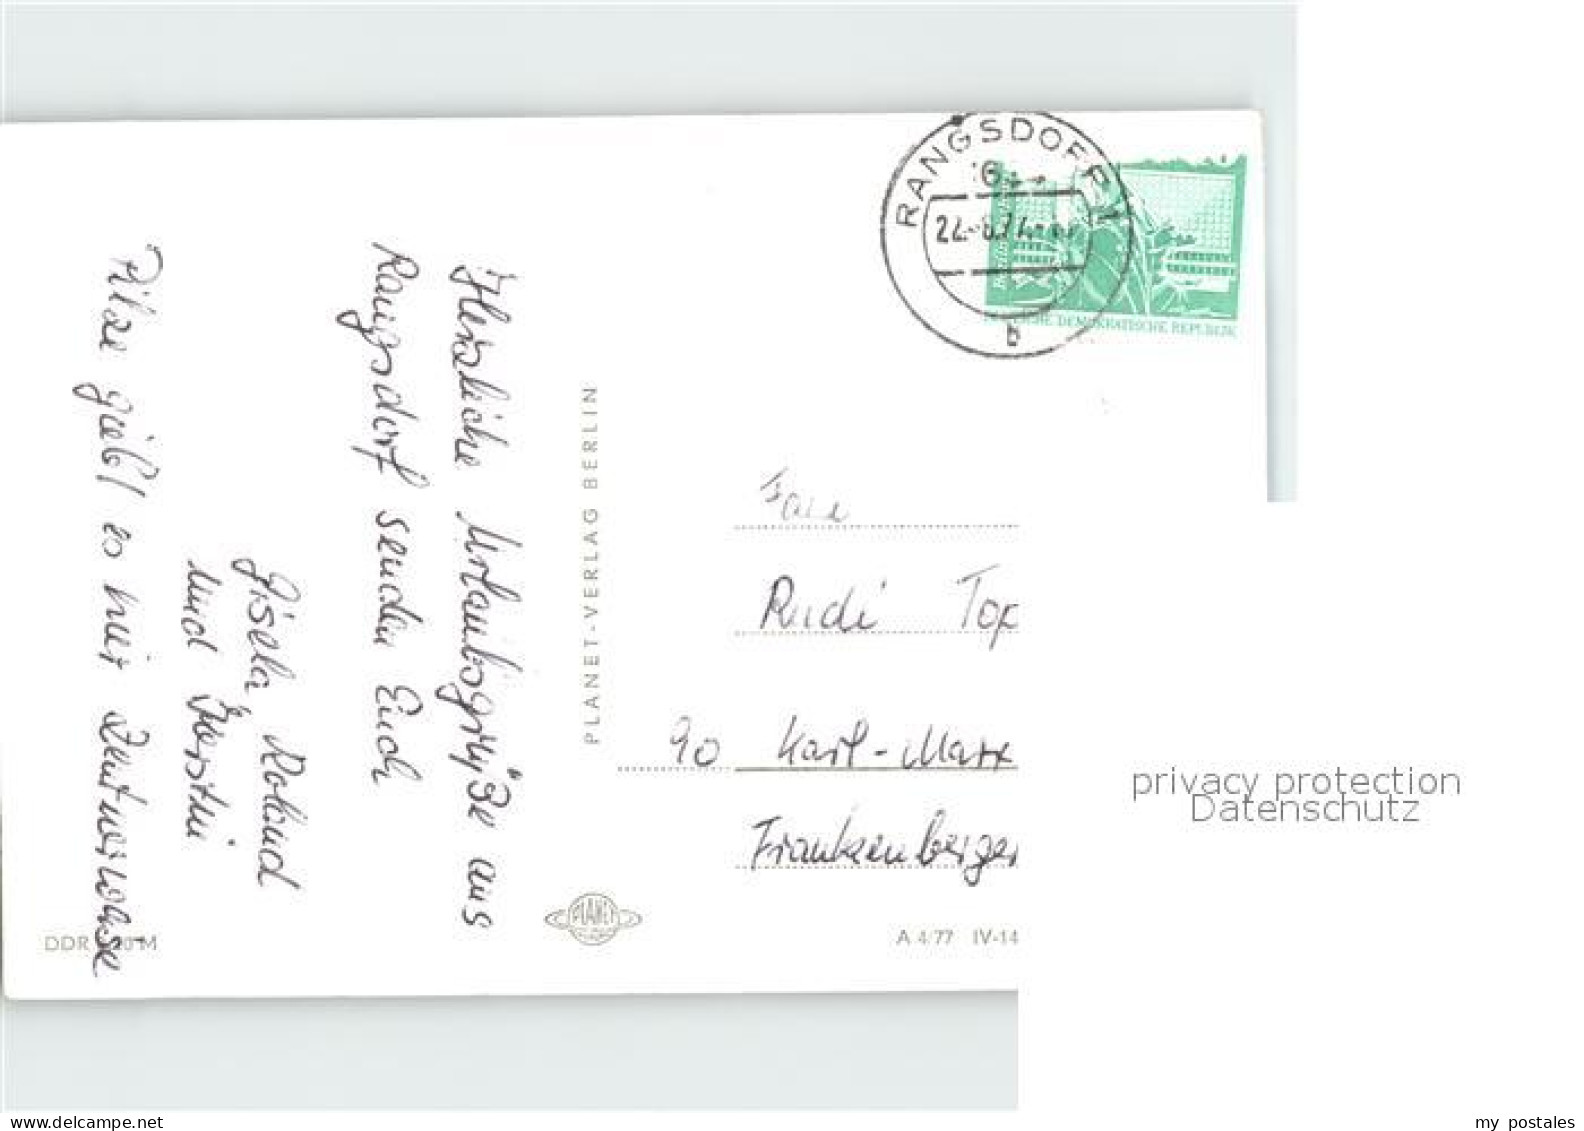 Herzliche Urlaubsgrüße aus
Rangsdorf senden Euch
Gisela, Roland
und Kerstin
Pilze giebt es nur zentnerweise
PLANET-VERLAG BERLIN
RANGSDORF 1
22.-8.77
b
DEUTSCHE DEMOKRATISCHE REPUBLIK
Fam
Rudi Top
90 Karl-Marx
Frankenberger
PLANET
DDR 20 M
A 4/77 IV-14
privacy protection
Datenschutz
my postales